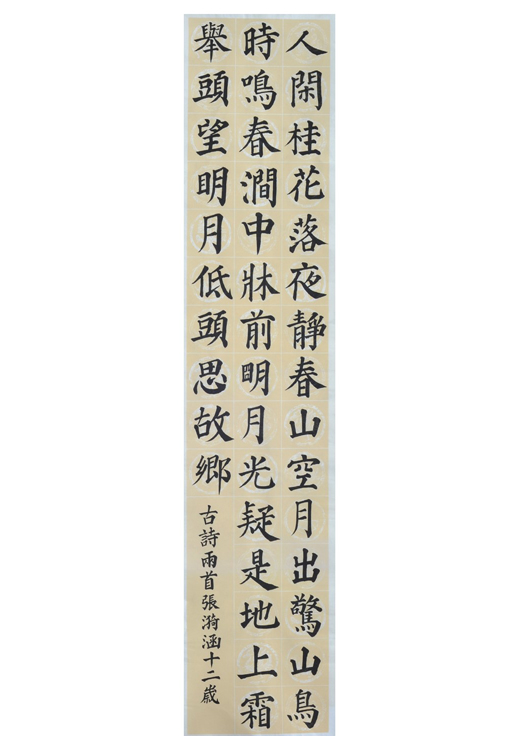 人閑桂花落夜靜春山空月出驚山鳥
時鳴春澗中牀前明月光疑是地上霜
舉頭望明月低頭思故鄉
古詩兩首張漪涵十二歲